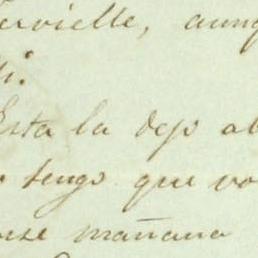 ervielle, aunq
Esta la dejo ab
tengo que vo
mañana